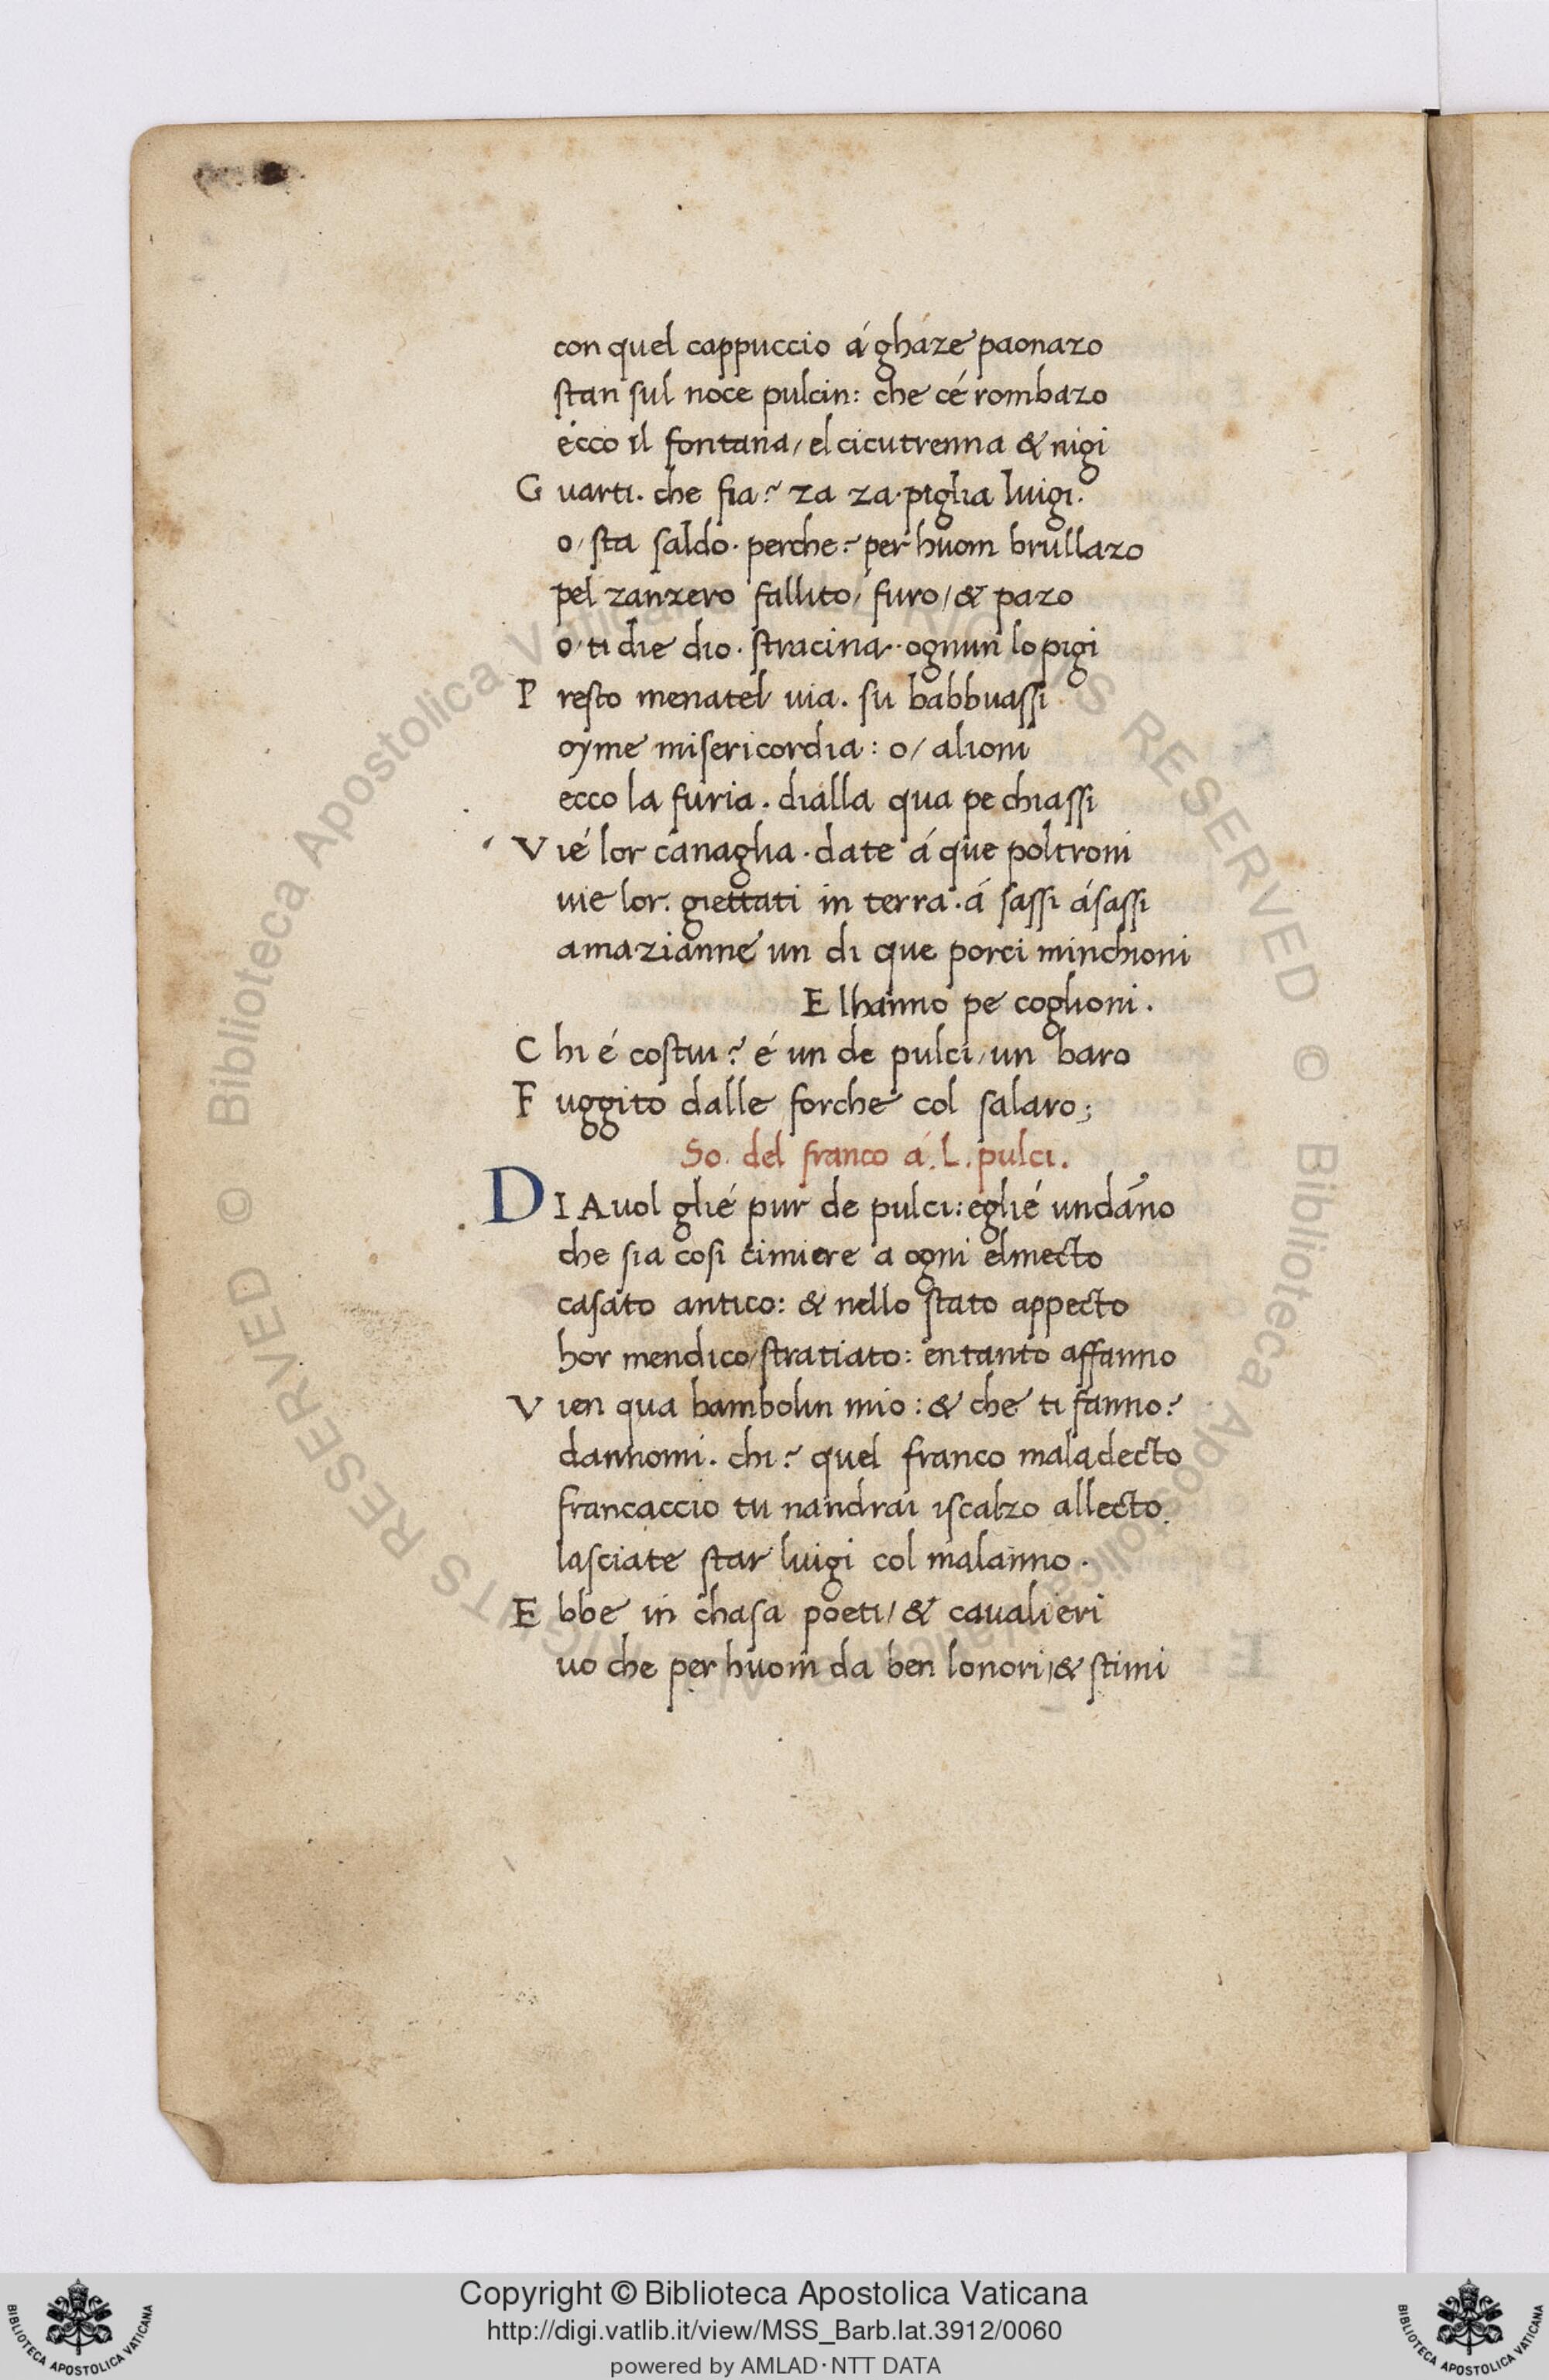 con quel cappuccio á gháze paonazo
stan sul noce pulcin: che cé rombazo
ecco il fontana/ el cicutrenna & nigi
G uarti. che fia? za za. piglia luigi.
o/ sta saldo. perche? per huom brullazo
pel zanzero fallito/ furo/ & pazo
o/ ti die dio. stracina. ognun lo pigi
P resto menatel uia. su babbuassi
oyme misericordia: o/ alioni
ecco la furia. dialla qua pe chiassi
V ié lor canaglia. date á que poltroni
uie lor. giettati in terra. á sassi á sassi
amazianne un di que porci minchioni
E lhanno pe coglioni.
C hi é costui? é un de pulci/ un baro
F uggito dalle forche col salaro;
So. del franco á. L. pulci.
DIAuol glié pur de pulci: eglié undãno
che sia cosi cimiere a ogni elmecto
casato antico: & nello stato appecto
hor mendico/ stratiato: entanto affanno
V ien qua bambolin mio: & che ti fanno?
dannomi. chi? quel franco maladecto
francaccio tu nandrai iscalzo allecto.
lasciate star luigi col malanno.
E bbe in chasa poeti/ & caualieri
uo che per huom da ben lonori/ & stimi
© Biblioteca Apostolica Vaticana ALL RIGHTS RESERVED © Biblioteca Apostolica Vaticana ALL RIGHTS RESERVED
Copyright © Biblioteca Apostolica Vaticana
http://digi.vatlib.it/view/MSS_Barb.lat.3912/0060
powered by AMLAD·NTT DATA
BIBLIOTECA APOSTOLICA VATICANA
BIBLIOTECA APOSTOLICA VATICANA